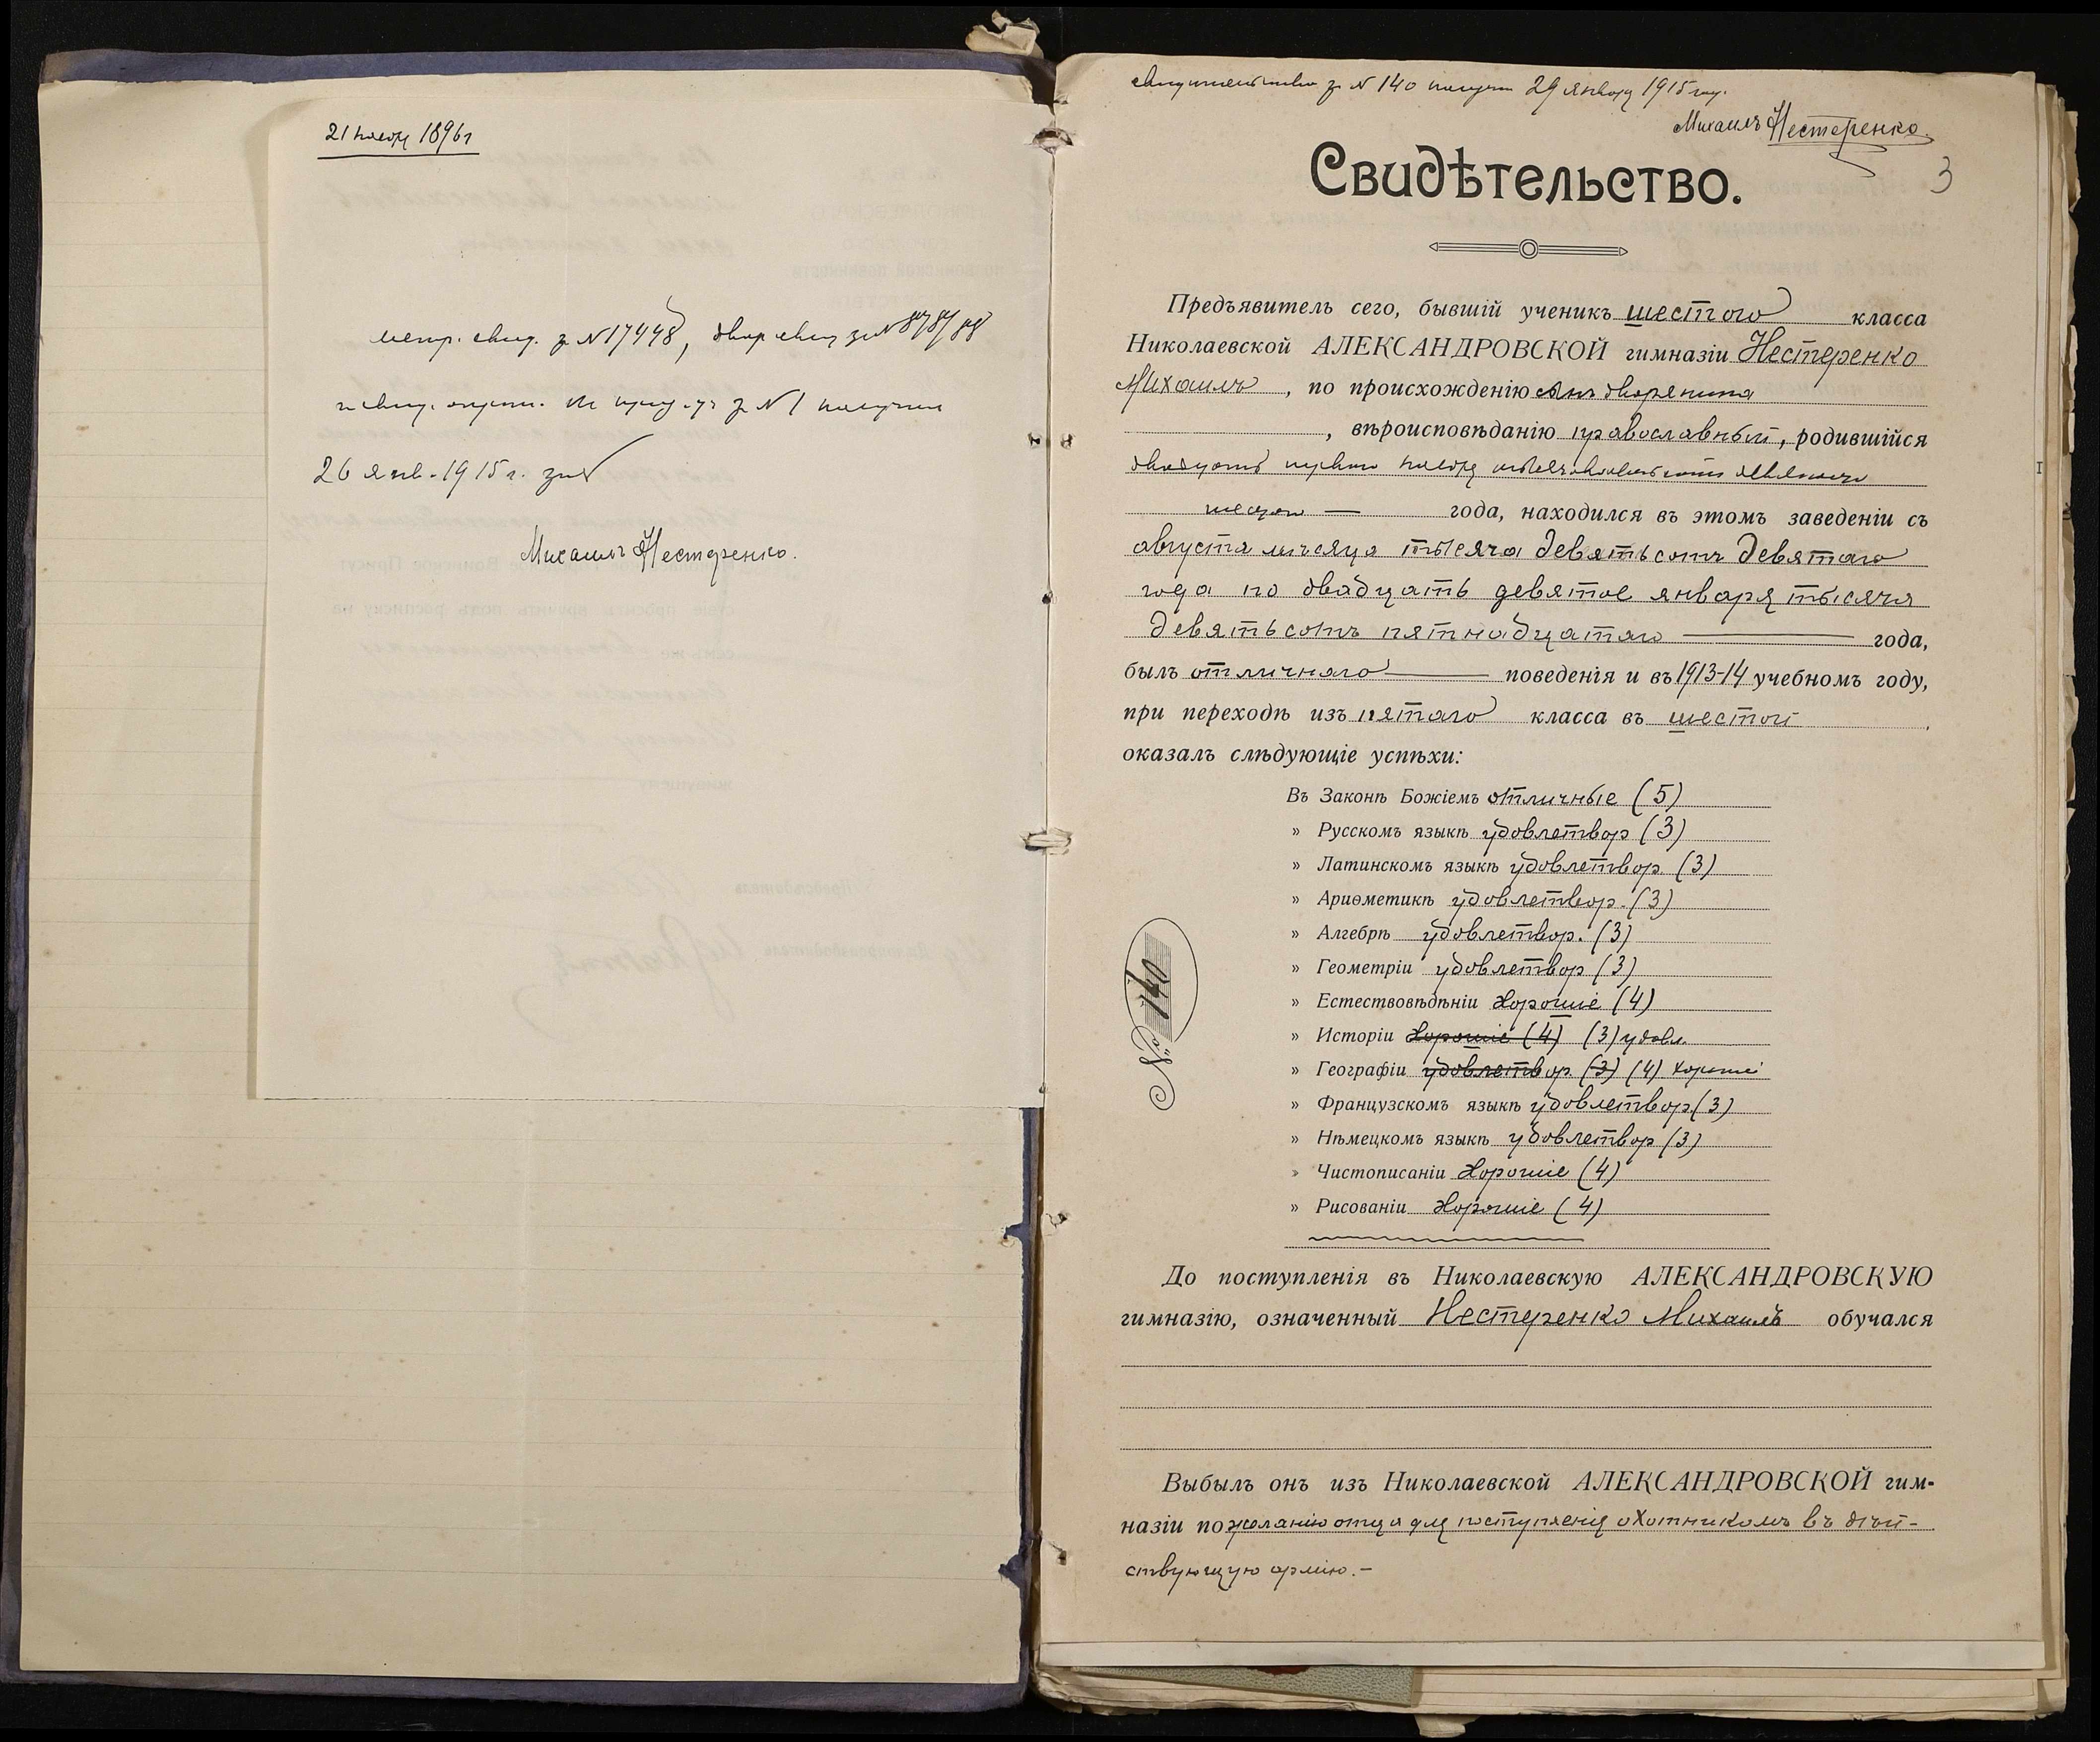 21 ноября 1896 г
метр. свид. за N 17448, двор. свид за N
и свид. о припис. к приз. уч за N 1 получил
26 янв. 1915 г.
Михаилъ Нестеренко.
свидетельство за N 140 получил 29 января 1915 году.
Михаилъ Нестеренко.
3
Свидѣтельство.
Предъявитель сего, бывшій ученикъ шестого класса
Николаевской АЛЕКСАНДРОВСКОЙ гимназіи Нестеренко
Михаилъ, по происхожденію сынъ дворянина
, вѣроисповѣданію православный, родившійся
двадцать перваго ноября тысяча восемьсотъ девяносто
шестого — года, находился въ этомъ заведеніи съ
августа мѣсяца тысяча девятьсотъ девятаго
года по двадцать девятое января тысяча
девятьсотъ пятнадцатаго — года,
былъ отличнаго — поведенія и въ 1913-14 учебномъ году,
при переходѣ изъ пятаго класса въ шестой
оказалъ слѣдующіе успѣхи:
Въ Законѣ Божіемъ отличные (5)
» Русскомъ языкѣ удовлетвор (3)
» Латинскомъ языкѣ удовлетвор. (3)
» Ариѳметикѣ удовлетвор. (3)
» Алгебрѣ удовлетвор. (3)
» Геометріи удовлетвор (3)
» Естествовѣдѣніи хорошіе (4)
» Исторіи хорошіе (4) (3) удовл.
» Географіи удовлетвор. (3) (4) хорошіе
» Французскомъ языкѣ удовлетвор (3)
» Нѣмецкомъ языкѣ удовлетвор (3)
» Чистописаніи хорошіе (4)
» Рисованіи хорошіе (4)
№ 140
До поступленія въ Николаевскую АЛЕКСАНДРОВСКУЮ
гимназію, означенный Нестеренко Михаилъ обучался
Выбылъ онъ изъ Николаевской АЛЕКСАНДРОВСКОЙ гим-
назіи по желанію отца для поступленія охотникомъ въ дѣй-
ствующую армію. –